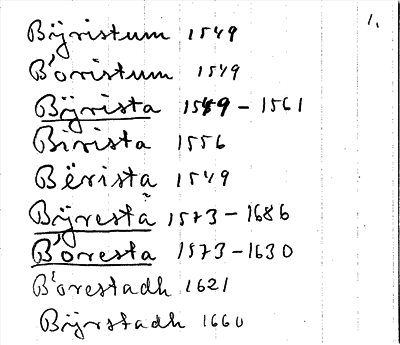 1.
Bÿristum 1549
B'oristum 1549
Bÿrista 1549 - 1561
Birista 1556
Bërista 1549
Bÿresta 1573 - 1686
B'oresta 1573 - 1630
B'orestadh 1621
Bÿrstadh 1660